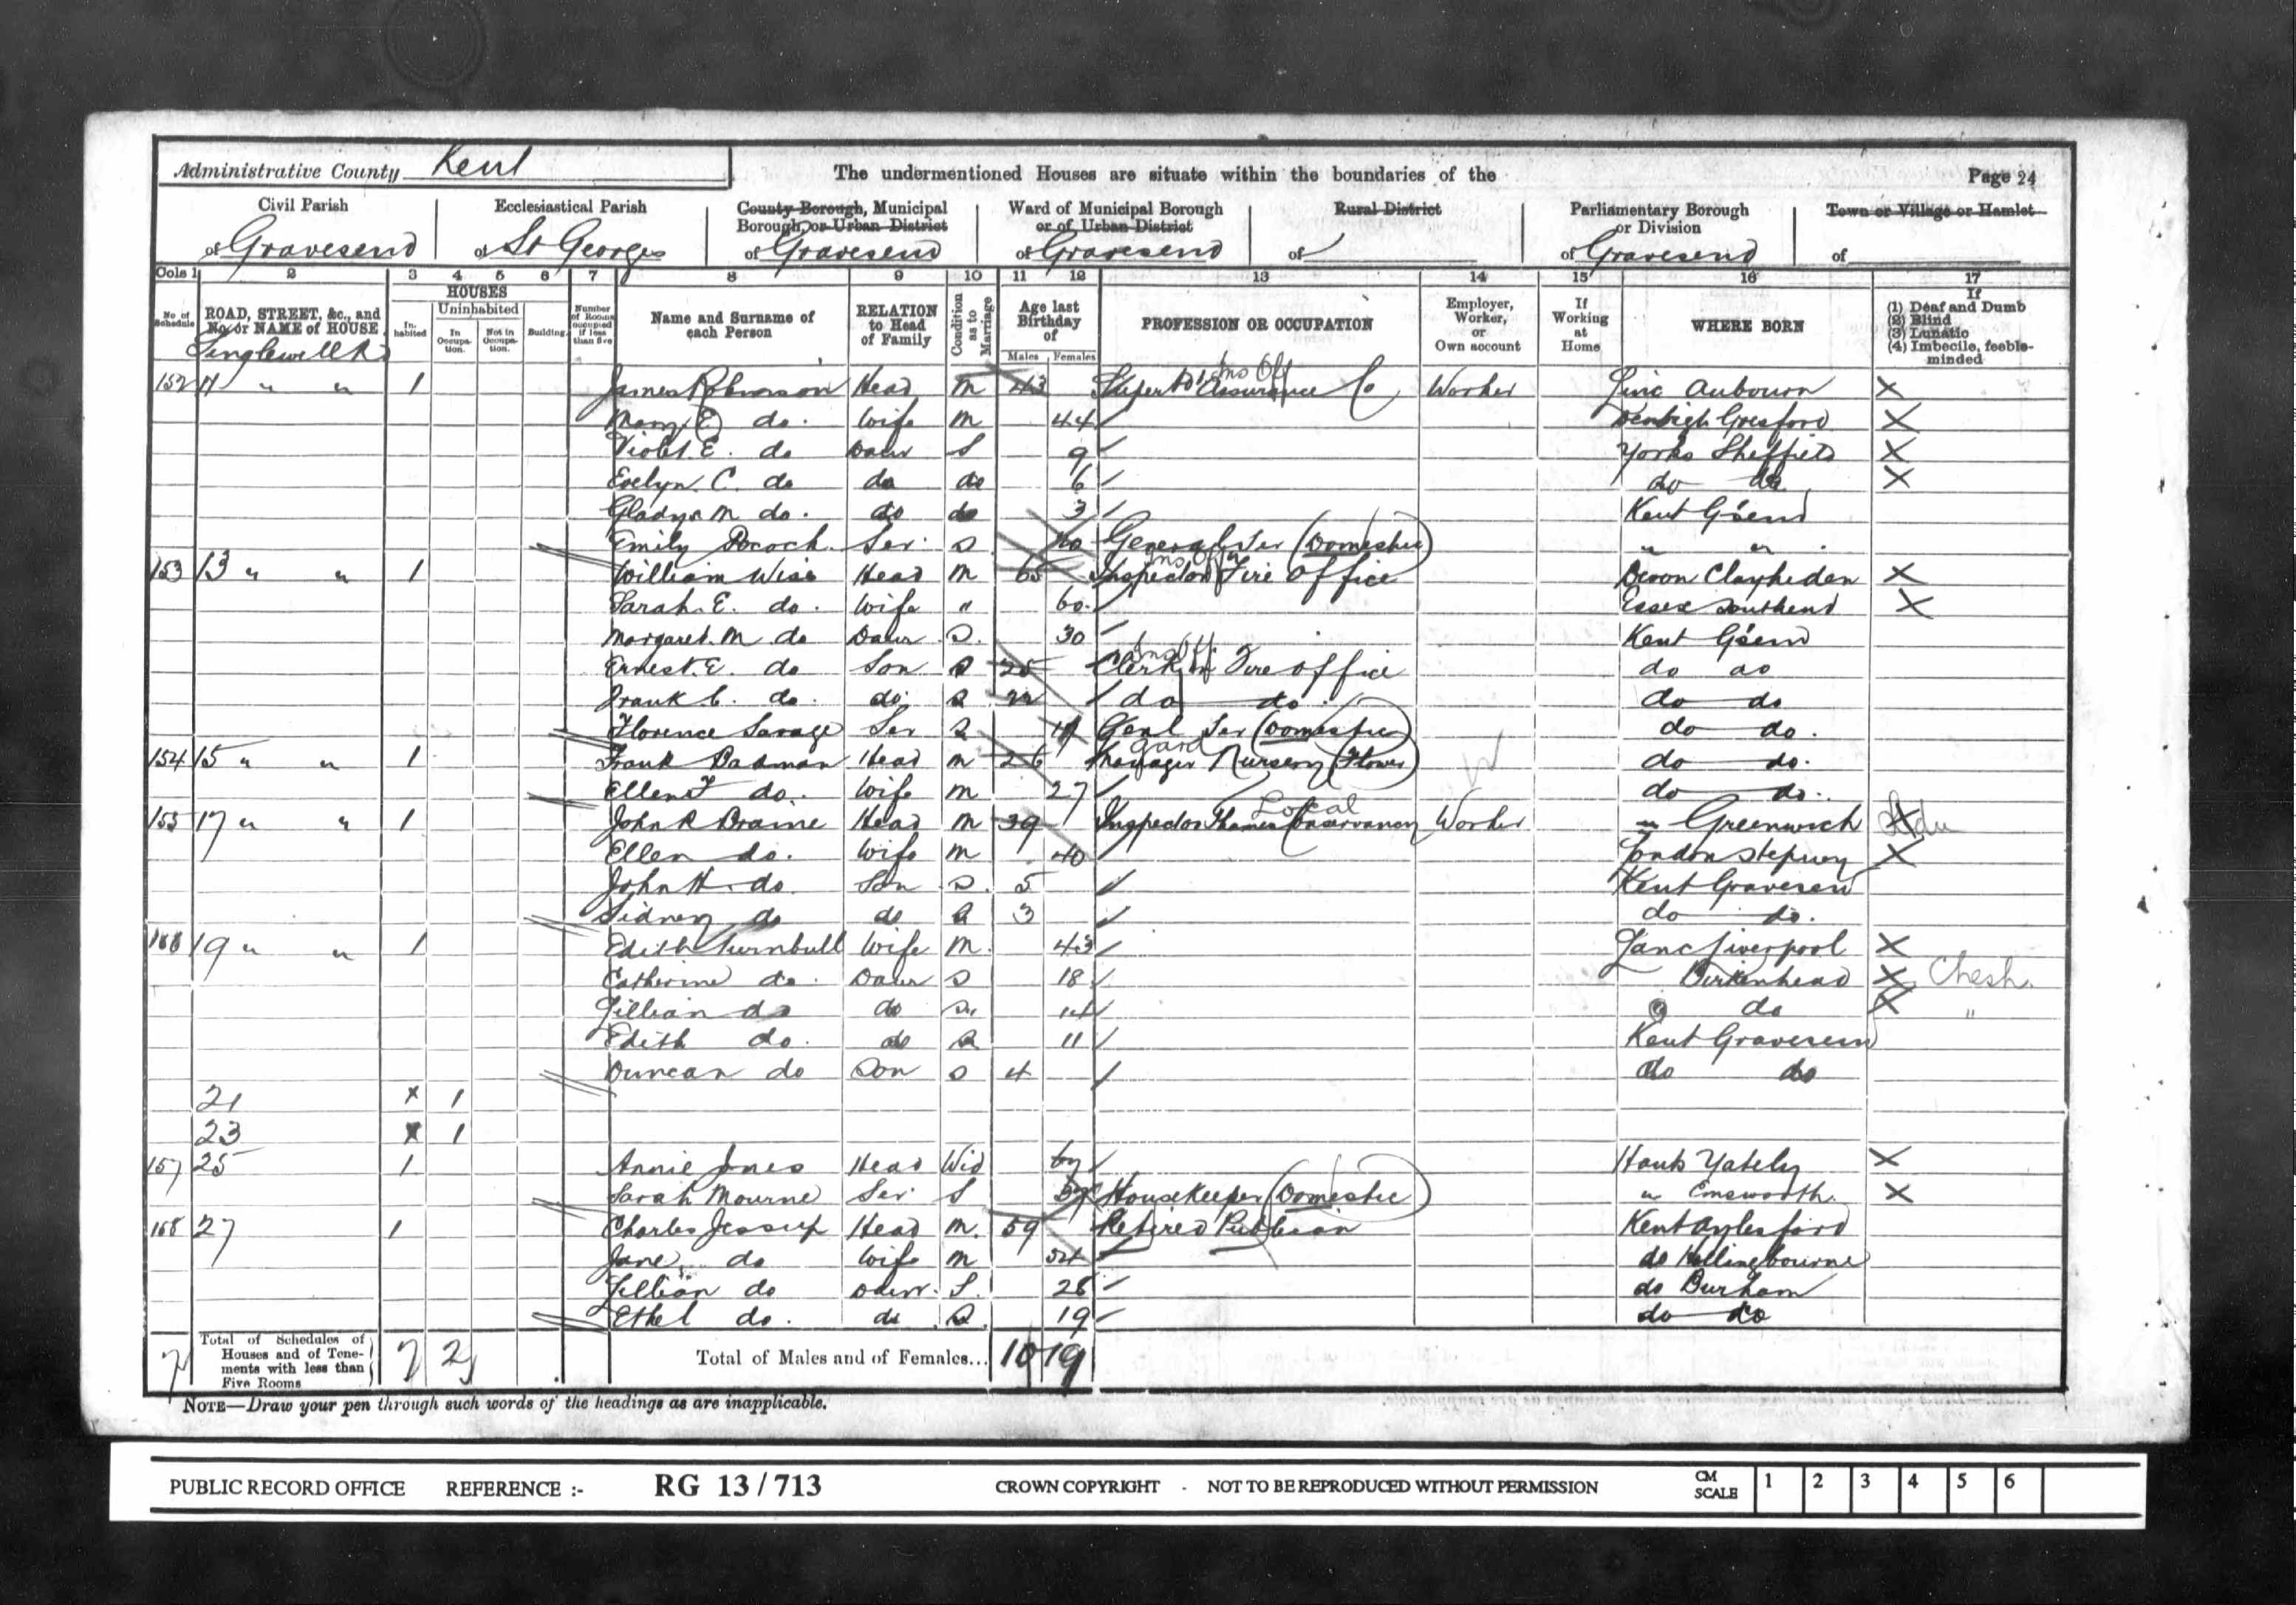 Administrative County Kent
The undermentioned Houses are situate within the boundaries of the
Page 24
Civil Parish
of Gravesend
Ecclesiastical Parish
of St Georges
County Borough, Municipal Borough, or Urban District
of Gravesend
Ward of Municipal Borough or of Urban District
of Gravesend
Rural District
of
Parliamentary Borough or Division
of Gravesend
Town or Village or Hamlet
of
Cols 1 2 3 4 5 6 7 8 9 10 11 12 13 14 15 16 17
No of Schedule
ROAD, STREET, &c., and No. or NAME of HOUSE
HOUSES
Inhabited
Uninhabited
In Occupation.
Not in Occupation.
Building
Number of Rooms occupied if less than five
Name and Surname of each Person
RELATION to Head of Family
Condition as to Marriage
Age last Birthday of
Males Females
PROFESSION OR OCCUPATION
Employer, Worker, or Own account
If Working at Home
WHERE BORN
If
(1) Deaf and Dumb
(2) Blind
(3) Lunatic
(4) Imbecile, feeble-minded
Singlewell Rd
152 11 " " 1 James Robinson Head M 43 Assurance Co Worker Linc Aubourn X
Mary E do. Wife M 44 Denbigh Gresford X
Violet. E. do Daur S 9 Yorks Sheffield X
Evelyn. C. do do do 6 do do X
Gladys M do. do do 3 Kent G'send
Emily Pocock. Ser. S 20 General Ser (Domestic) " "
153 13 " " 1 William Wise Head M 65 Inspector Fire Office Devon X
Sarah. E. do. Wife " 60. Essex Southend X
Margaret. M do Daur S. 30 Kent G'send
Ernest. E. do Son S 25 Clerk in Fire Office do do
Frank C. do. do. S 22 do do. do do
Florence Savage Ser S Genl Ser (Domestic) do do.
154 15 " " 1 Frank Badman Head M 26 Manager Nursery (Flower) do do.
Ellen F do. Wife M 27 do do.
155 17 " " 1 John R Braine Head M 39 Inspector Thames Conservancy Worker " Greenwich X
Local
Ellen do. Wife M 40 London Stepney X
John H. do. Son S. 5 Kent Gravesend
Sidney do do S 3 do do.
19 " " 1 Edith Turnbull Wife M. 43 Lanc Liverpool X
Catherine do. Daur S 18 Birkenhead X Chesh.
Lillian do do S. 14 do X "
Edith do. do S 11 Kent Gravesend
Duncan do Son S 4 do do
21 X 1
23 X 1
157 25 1 Annie Jones Head Wid Hants Yately X
Sarah Mourne Ser. S Housekeeper (Domestic) " Emsworth. X
158 27 1 Charles Jessup Head M. 59 Retired Publican Kent Aylesford
Jane do Wife M 54 do Hollingbourne
Lillian do Daur. S. 28 do Burham
Ethel do. do S. 19 do do
7 Total of Schedules of Houses and of Tenements with less than Five Rooms 7 2
Total of Males and of Females... 10 19
NOTE—Draw your pen through such words of the headings as are inapplicable.
PUBLIC RECORD OFFICE REFERENCE :- RG 13/713 CROWN COPYRIGHT - NOT TO BE REPRODUCED WITHOUT PERMISSION CM SCALE 1 2 3 4 5 6